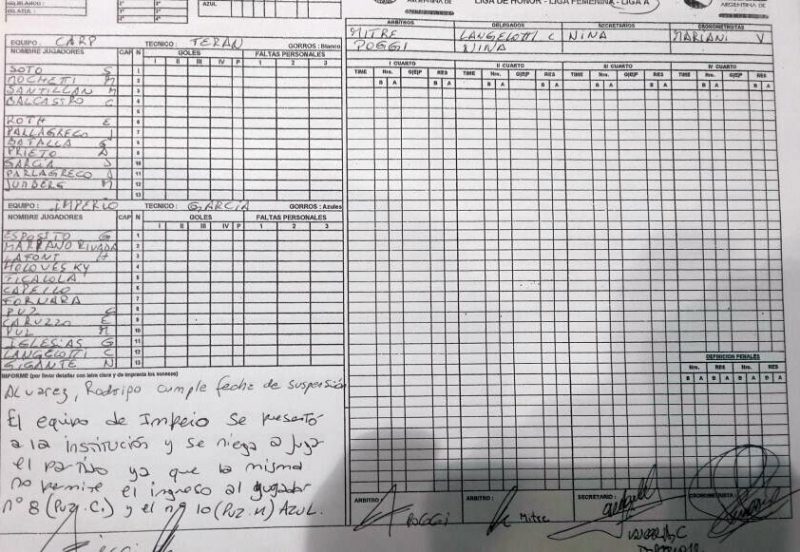 LIGA DE HONOR - LIGA FEMENINA - LIGA A
ARGENTINA DE
AZUL
ARBITROS DELEGADOS SECRETARIOS CRONOMETRISTAS
MITRE LANGELOTTI C NINA MARIANI V
POGGI NINA
EQUIPO : CARP TECNICO : TERAN GORROS : Blanco
NOMBRE JUGADORES CAP N GOLES FALTAS PERSONALES
I II III IV P 1 2 3
SOTO S 1
MOCHETTI M 2
SANTILLAN M 3
BALCASTRO C 4
5
ROTH E 6
PALLAGRECO J 7
BATALLA G 8
PRIETO A 9
GARCIA S 10
PARLAGRECO A 11
JUNBERG M 12
13
EQUIPO : IMPERIO TECNICO : GARCIA GORROS : Azules
NOMBRE JUGADORES CAP N GOLES FALTAS PERSONALES
I II III IV P 1 2 3
ESPOSITO G 1
MARRANO RIVADA 2
LAFONT H 3
HOLOVESKY 4
TICALOLA 5
CAPELLO 6
FORNARA 7
PUZ C 8
CARUZZO E 9
PUZ M 10
IGLESIAS G 11
LANGELOTTI C 12
GIGANTE N 13
I CUARTO II CUARTO III CUARTO IV CUARTO
TIME Nro. G|E|P RES TIME Nro. G|E|P RES TIME Nro. G|E|P RES TIME Nro. G|E|P RES
B A B A B A B A B A B A B A B A
DEFINICION PENALES
Nro. RES Nro. RES
B A B A B A B A
INFORME (por favor detallar con letra clara y de imprenta los sucesos)
Alvarez, Rodrigo cumple fecha de suspensión
El equipo de Imperio se presentó
a la institución y se niega a jugar
el partido ya que la misma
no permite el ingreso al jugador
nº 8 (Puz C.) y el nº 10 (Puz M) AZUL.
ARBITRO : ARBITRO : SECRETARIO : CRONOMETRISTA :
POGGI Mitre